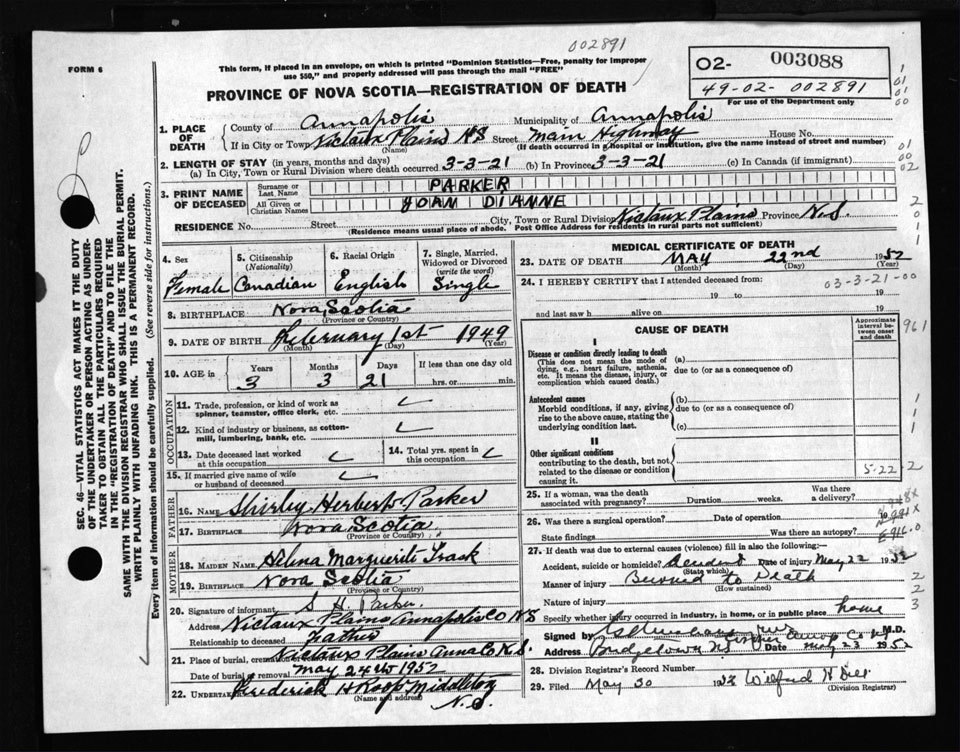 002891
FORM 6
This form, if placed in an envelope, on which is printed "Dominion Statistics—Free, penalty for improper
use $50," and properly addressed will pass through the mail "FREE"
O2- 003088
49-02- 002891
For use of the Department only
PROVINCE OF NOVA SCOTIA—REGISTRATION OF DEATH
1. PLACE OF DEATH
County of Annapolis Municipality of Annapolis
If in City or Town Nictaux Plains NS Street Main Highway House No.
(Name) (If death occurred in a hospital or institution, give the name instead of street and number)
2. LENGTH OF STAY (in years, months and days)
(a) In City, Town or Rural Division where death occurred 3-3-21 (b) In Province 3-3-21 (c) In Canada (if immigrant)
3. PRINT NAME OF DECEASED
Surname or Last Name PARKER
All Given or Christian Names JOAN DIANNE
RESIDENCE No. Street City, Town or Rural Division Nictaux Plains Province N.S.
(Residence means usual place of abode. Post Office Address for residents in rural parts not sufficient)
4. Sex Female
5. Citizenship (Nationality) Canadian
6. Racial Origin English
7. Single, Married, Widowed or Divorced (write the word) Single
8. BIRTHPLACE Nova Scotia
(Province or Country)
9. DATE OF BIRTH February 1st 1949
(Month) (Day) (Year)
10. AGE in Years 3 Months 3 Days 21 If less than one day old hrs. or min.
OCCUPATION
11. Trade, profession, or kind of work as
spinner, teamster, office clerk, etc.
12. Kind of industry or business, as cotton-
mill, lumbering, bank, etc.
13. Date deceased last worked
at this occupation
14. Total yrs. spent in
this occupation
15. If married give name of wife
or husband of deceased
FATHER
16. NAME Shirley Herbert Parker
17. BIRTHPLACE Nova Scotia
(Province or Country)
MOTHER
18. MAIDEN NAME Selina Marguerite Trask
19. BIRTHPLACE Nova Scotia
(Province or Country)
20. Signature of informant S H. Parker
Address Nictaux Plains Annapolis Co N S
Relationship to deceased Father
21. Place of burial, cremation Nictaux Plains Anna Co N.S.
Date of burial or removal May 24th 1952
22. UNDERTAKER Frederick H Roop Middleton
(Name and address) N.S.
MEDICAL CERTIFICATE OF DEATH
23. DATE OF DEATH MAY 22nd 1952
(Month) (Day) (Year)
24. I HEREBY CERTIFY that I attended deceased from: 03-3-21-00
19 to 19
and last saw h alive on 19
CAUSE OF DEATH
Approximate interval between onset and death
I
Disease or condition directly leading to death
(This does not mean the mode of dying, e.g., heart failure, asthenia, etc. It means the disease, injury, or complication which caused death.)
(a)
due to (or as a consequence of)
Antecedent causes
Morbid conditions, if any, giving rise to the above cause, stating the underlying condition last.
(b)
due to (or as a consequence of)
(c)
II
Other significant conditions
contributing to the death, but not related to the disease or condition causing it.
5-22-2
25. If a woman, was the death
associated with pregnancy? Duration weeks. Was there a delivery?
26. Was there a surgical operation? Date of operation 19
State findings Was there an autopsy?
27. If death was due to external causes (violence) fill in also the following:—
Accident, suicide or homicide? Accident Date of injury May 22 1952
(State which)
Manner of injury Burned to Death
(How sustained)
Nature of injury
Specify whether injury occurred in industry, in home, or in public place home
Signed by M.D.
Address Bridgetown NS Date May 23 1952
28. Division Registrar's Record Number
29. Filed May 30 Wilfred H
(Division Registrar)
961
E916.0
SEC. 46—VITAL STATISTICS ACT MAKES IT THE DUTY
OF THE UNDERTAKER OR PERSON ACTING AS UNDER-
TAKER TO OBTAIN ALL THE PARTICULARS REQUIRED
IN THE "REGISTRATION OF DEATH" AND TO FILE THE
SAME WITH THE DIVISION REGISTRAR WHO SHALL ISSUE THE BURIAL PERMIT.
WRITE PLAINLY WITH UNFADING INK. THIS IS A PERMANENT RECORD.
Every item of information should be carefully supplied. (See reverse side for instructions.)